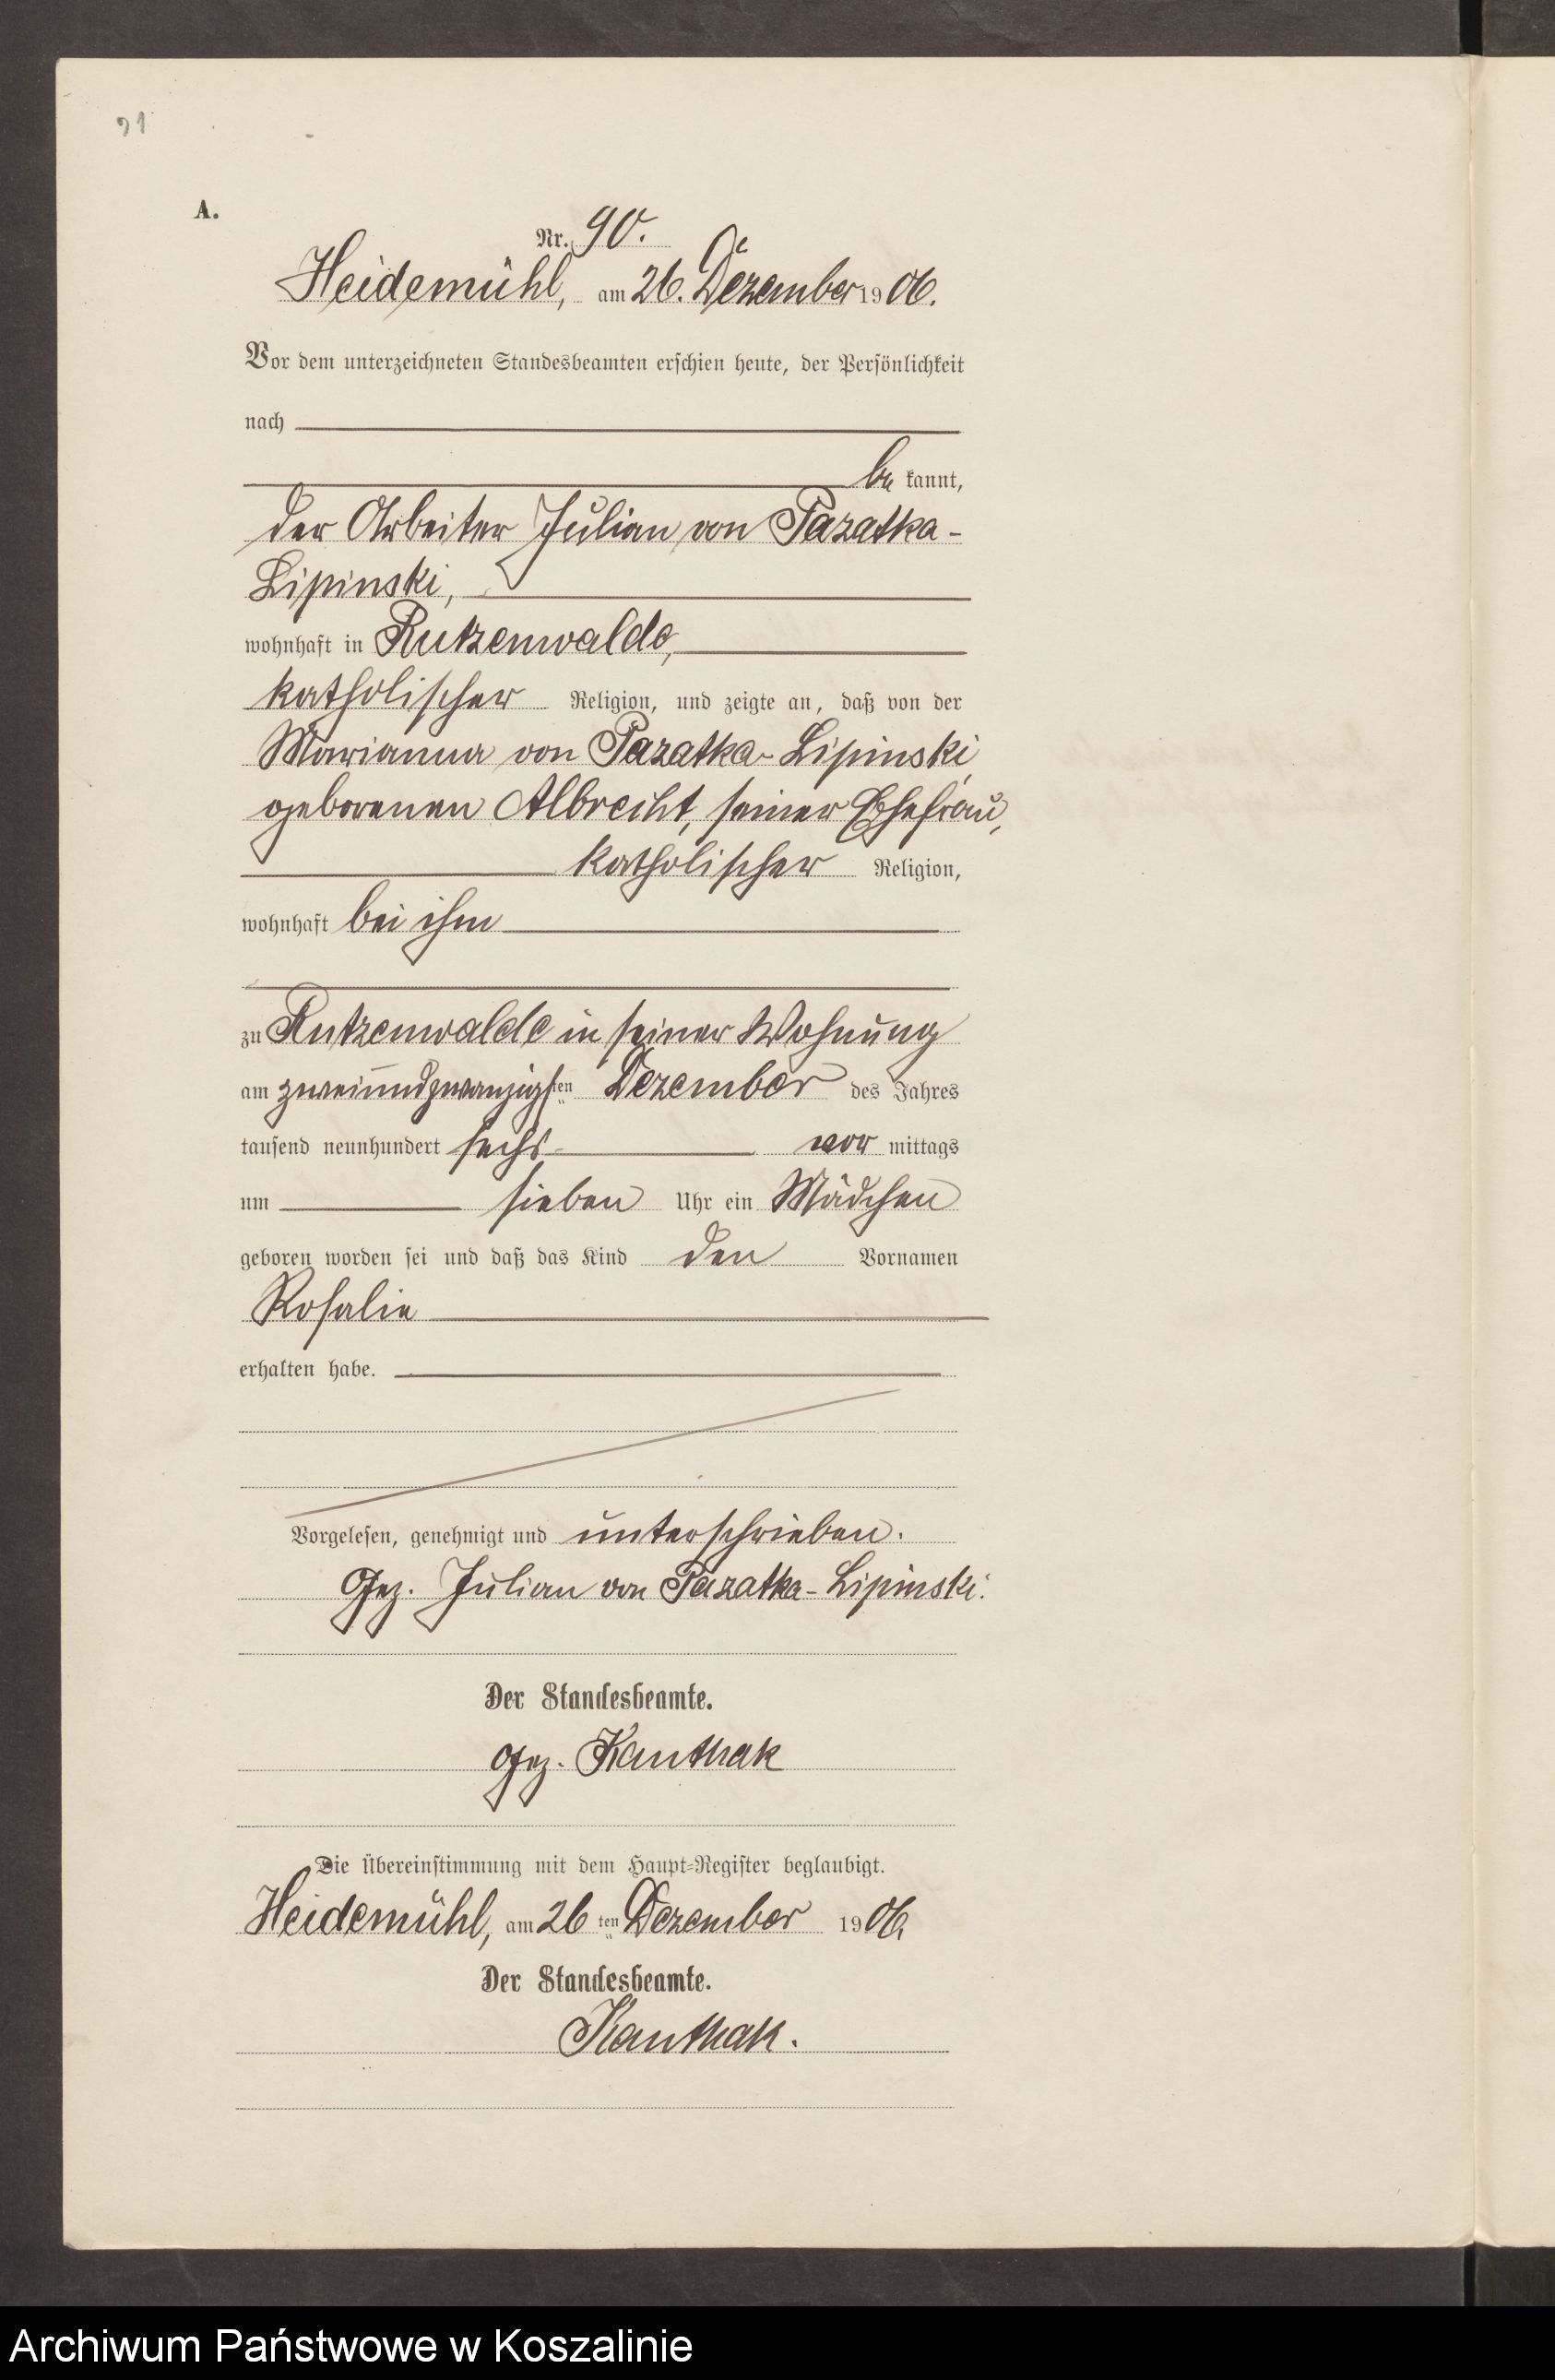 91
A.
Nr. 90.
Heidemühl, am 26. Dezember 1906.
Vor dem unterzeichneten Standesbeamten erschien heute, der Persönlichkeit
nach
be kannt,
der Arbeiter Julian von Pazatka-
Lipinski,
wohnhaft in Rutzenwalde,
katholischer Religion, und zeigte an, daß von der
Marianna von Pazatka-Lipinski,
geborenen Albrecht, seiner Ehefrau,
katholischer Religion,
wohnhaft bei ihm
zu Rutzenwalde in seiner Wohnung
am zweiundzwanzigsten Dezember des Jahres
tausend neunhundert sechs vor mittags
um sieben Uhr ein Mädchen
geboren worden sei und daß das Kind den Vornamen
Rosalie
erhalten habe.
Vorgelesen, genehmigt und unterschrieben.
Gez. Julian von Pazatka-Lipinski.
Der Standesbeamte.
Gez. Kanthak
Die Übereinstimmung mit dem Haupt-Register beglaubigt.
Heidemühl, am 26ten Dezember 1906.
Der Standesbeamte.
Kanthak.
Archiwum Państwowe w Koszalinie